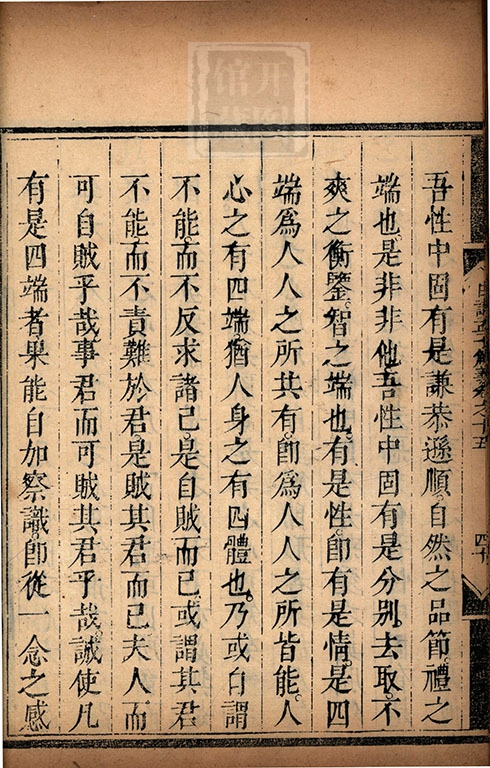 吾性中固有是謙恭遜順自然之品節禮之
端也是非非他吾性中固有是分別去取不
爽之衡鑒智之端也有是性即有是情是四
端爲人人之所共有即爲人人之所皆能人
心之有四端猶人身之有四體也乃或自謂
不能而不反求諸己是自賊而已或謂其君
不能而不責難於君是賊其君而已夫人而
可自賊乎哉事君而可賊其君乎哉誠使凡
有是四端者果能自加察識即從一念之感